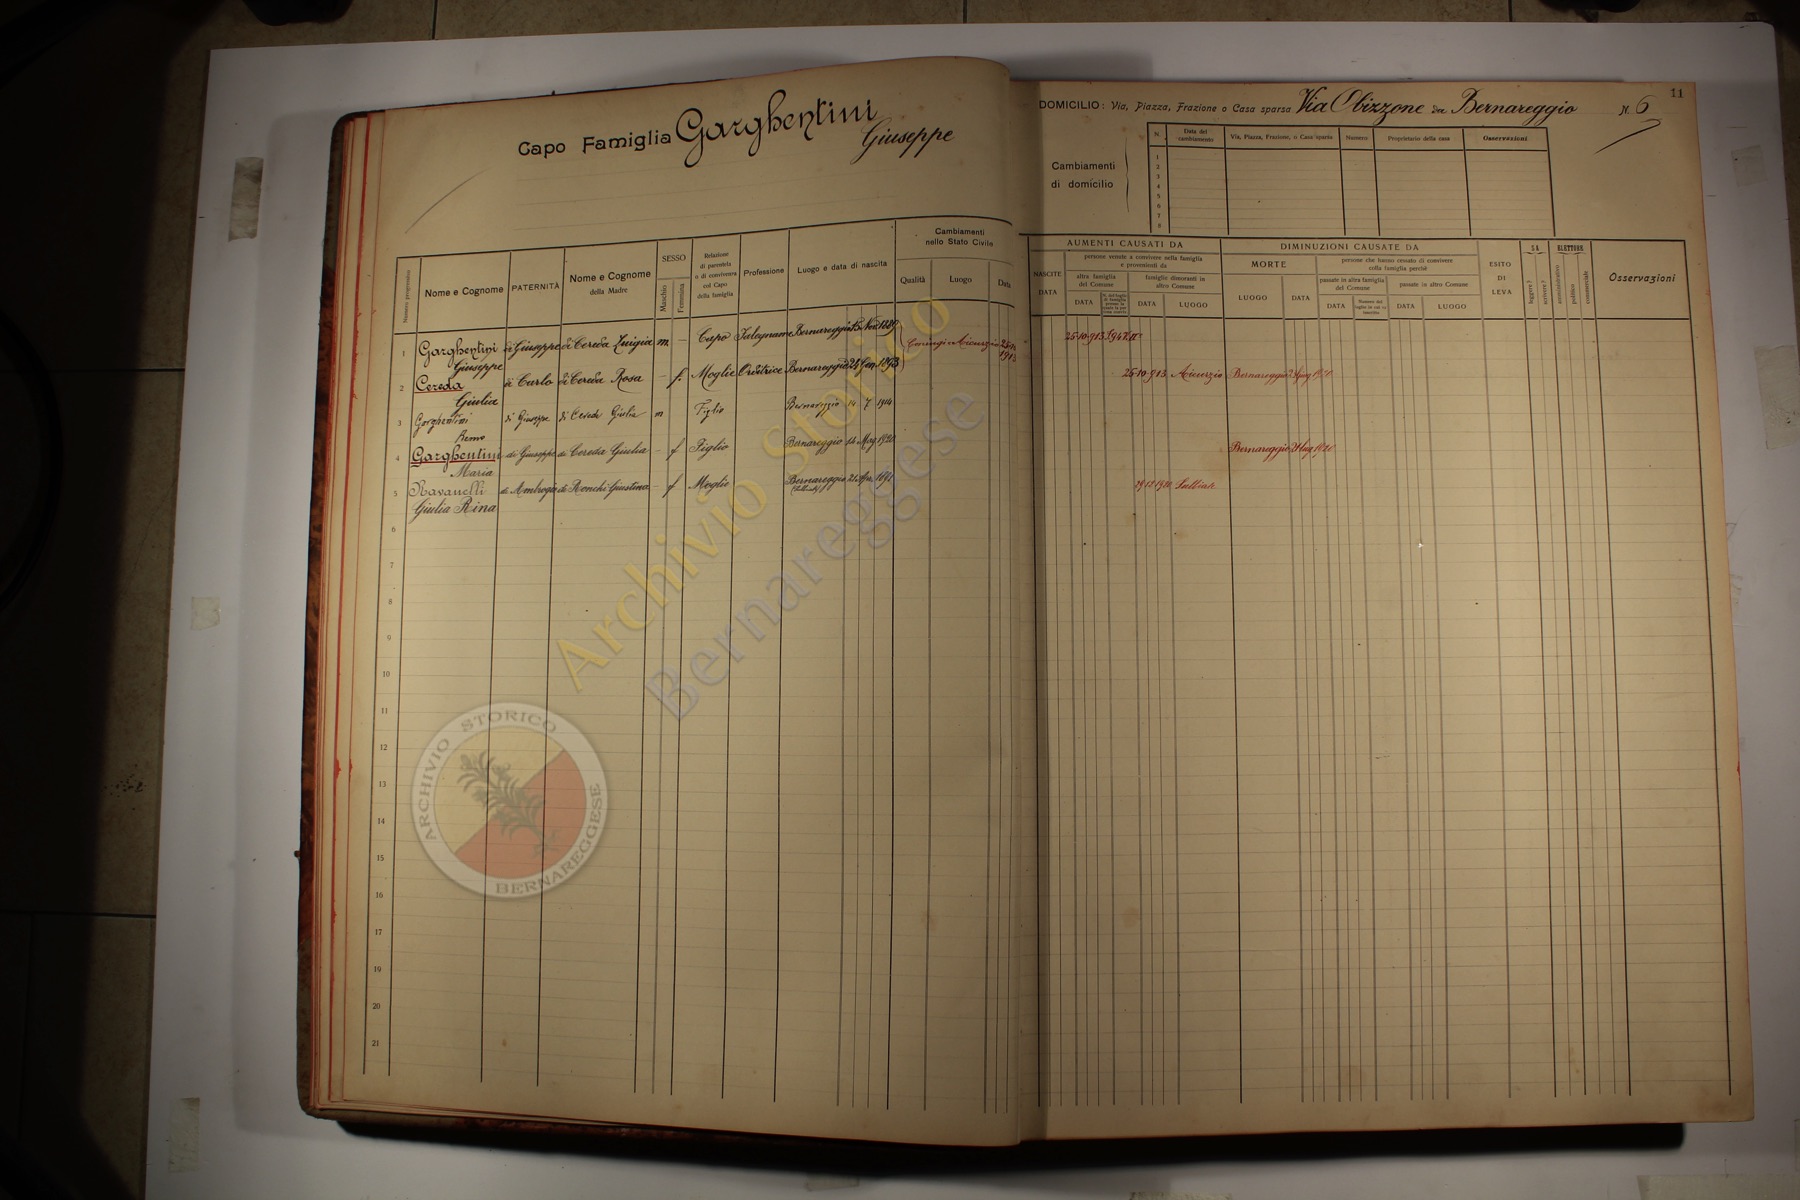 11
Capo Famiglia Garghentini
Giuseppe
DOMICILIO: Via, Piazza, Frazione o Casa sparsa Via Obizzone da Bernareggio N. 6
Cambiamenti
di domicilio
N. Data del cambiamento Via, Piazza, Frazione, o Casa sparsa Numero Proprietario della casa Osservazioni
1
2
3
4
5
6
7
8
Numero progressivo Nome e Cognome PATERNITÀ Nome e Cognome della Madre SESSO Maschio Femmina Relazione di parentela o di convivenza col Capo della famiglia Professione Luogo e data di nascita Cambiamenti nello Stato Civile Qualità Luogo Data
NASCITE DATA AUMENTI CAUSATI DA persone venute a convivere nella famiglia e provenienti da altra famiglia del Comune DATA famiglie dimoranti in altro Comune DATA LUOGO
DIMINUZIONI CAUSATE DA MORTE LUOGO DATA persone che hanno cessato di convivere colla famiglia perchè passate in altra famiglia del Comune DATA passate in altro Comune DATA LUOGO
ESITO DI LEVA SA leggere? scrivere? ELETTORE amministrativo politico commerciale Osservazioni
1 Garghentini Giuseppe di Giuseppe di Cereda Luigia m - Capo Falegname Bernareggio 15 Nov. 1889 Coniugi Aicurzio 25-10 1913 25-10-913
2 Cereda Giulia di Carlo di Cereda Rosa - f. Moglie Orditrice Bernareggio 24 Gen. 1893 25-10-913 Aicurzio Bernareggio 1920
3 Garghentini Remo di Giuseppe di Cereda Giulia m Figlio Bernareggio 14 7 1914
4 Garghentini Maria di Giuseppe di Cereda Giulia - f Figlia Bernareggio 14 Mag. 1920 Bernareggio 1920
5 Ravanelli Giulia Rina di Ambrogio di Ronchi Giustina - f Moglie Bernareggio 21 Apr. 1891 Sulbiate
6
8
9
10
11
12
13
14
15
16
17
18
19
20
21
Archivio Storico
Bernareggese
ARCHIVIO STORICO
BERNAREGGESE